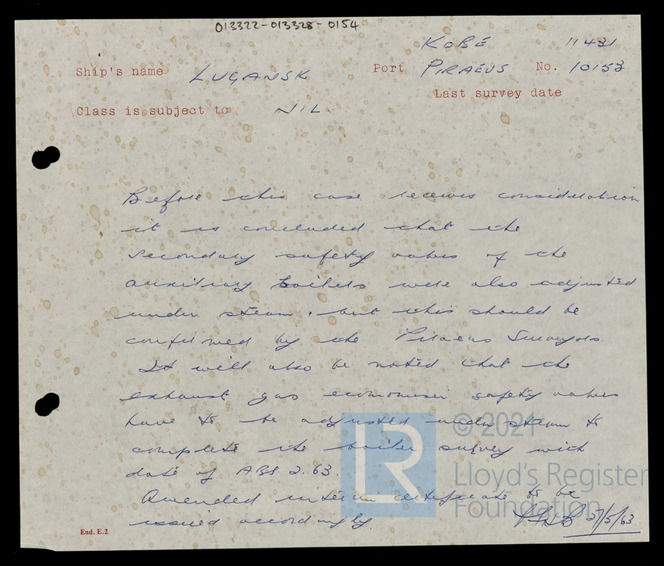 013322-013328-0154
KOBE 11431
Ship's name LUGANSK Port PIRAEUS No. 10153
Last survey date
Class is subject to NIL.
Before this case receives consideration
it is concluded that the
secondary safety valves of the
auxiliary boilers were also adjusted
under steam, but this should be
confirmed by the Piraeus Surveyors
It will also be noted that the
exhaust gas economiser safety valves
have to be adjusted under steam to
complete the boiler survey with
date of ABS 2.63.
Amended interim certificate to be
issued accordingly.
27/5/63
End. E.2
LR
© 2021
Lloyd's Register
Foundation